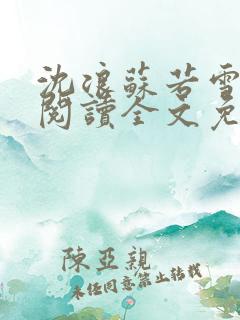 沈浪蘇若雪
閱讀全文免
陳亞親
未經同意禁止轉載